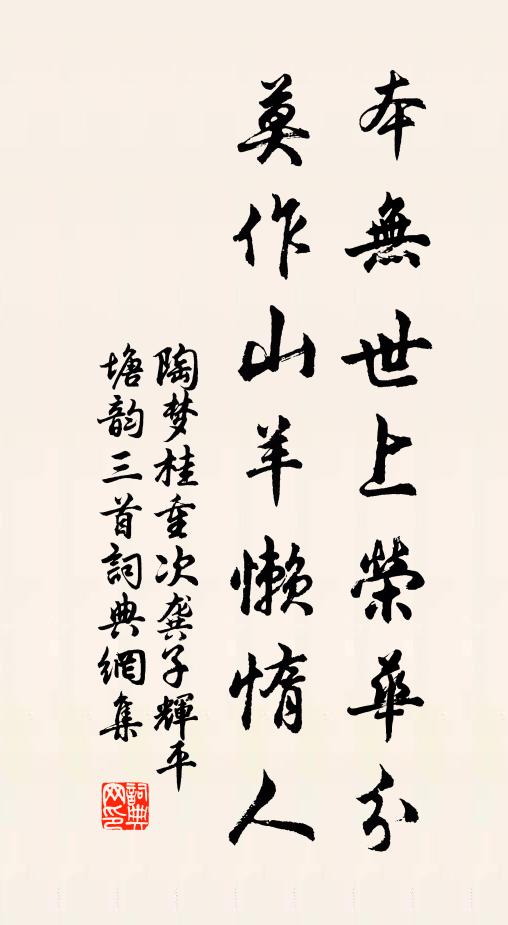 本無世上榮華分
莫作山羊懶惰人
陶梦桂重次龚子輝平
塘韵三首詞典網集
詞典网印